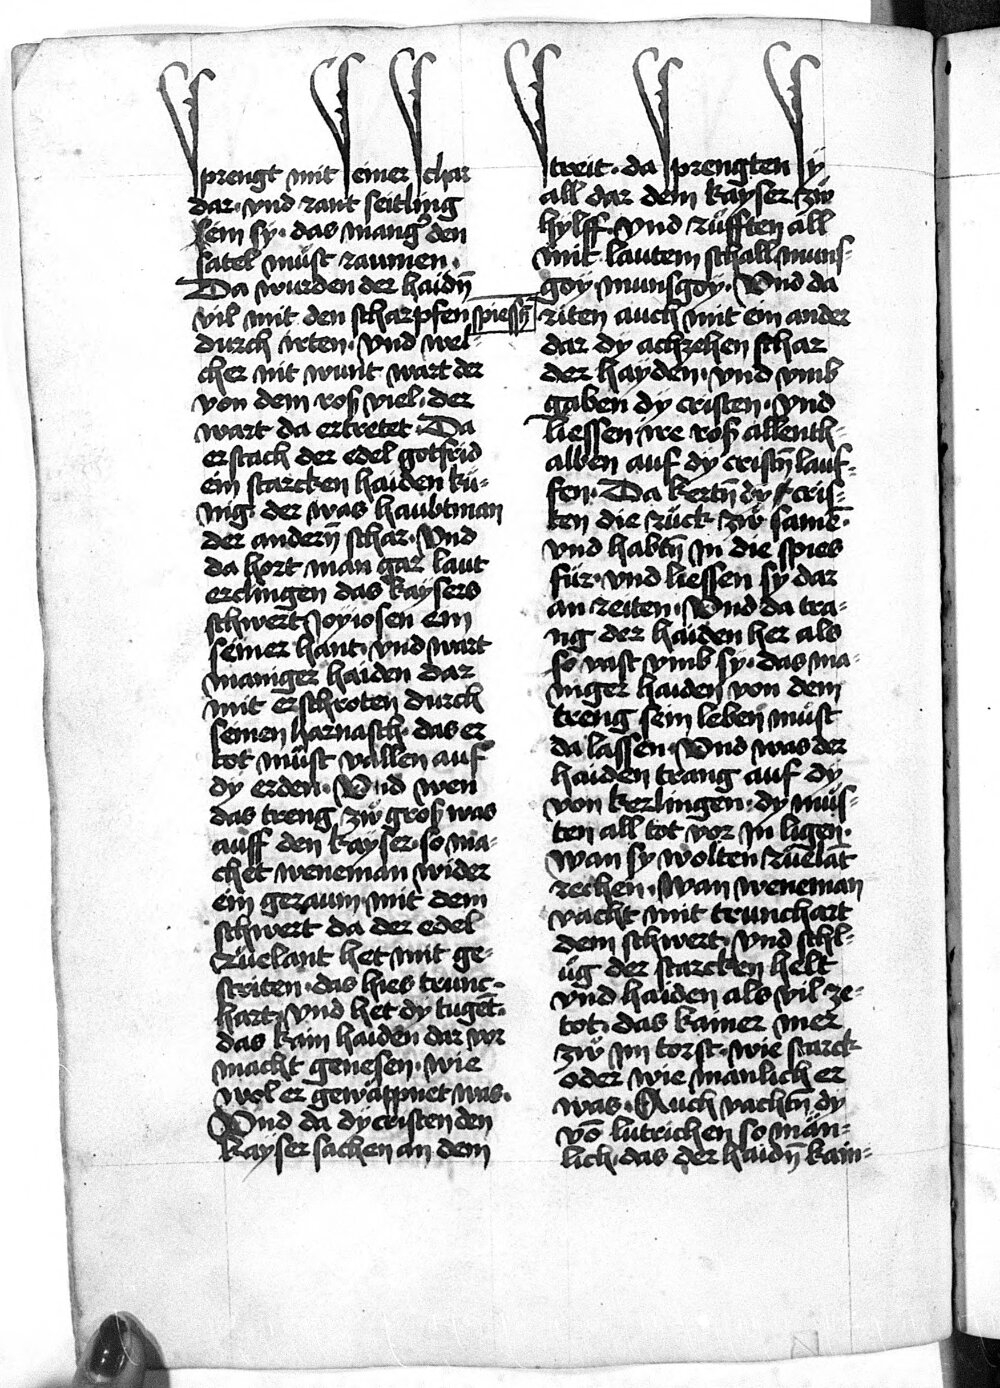 sprengt mit seiner schar
dar · vnd rant seitling
sein sy · das mang̛ den
satel müst raumen ·
Da wurden der haidn̄
vil mit den scharpfen spiessn̄
durch rten · vnd wel-
cher nit wunt wart der
von dem roß viel · der
wart da ertretet · Da
erstach der edel gotfrid
ein starcken haiden kü-
nig der was haubtman
der andern̄ schar · Vnd
da hort man gar laut
erclingen das kaysers
schwert Joyiosen ein
seiner hant · vnd wart
maniger haiden dar
mit erschroten durch
seinen harnasch · das er
tot müst vallen auf
dy erden · Vnd wen
das treng zw̎ groß was
auff den kayser · so ma-
chet weneman wider
ein geraum · mit dem
schwert da der edel
Rüelant het mit ge-
striten · das hies trunc-
hart · vnd het dy tugēt ·
das kain haiden dar vor
macht genesen · wie
wol er gewappnet was ·
Vnd da dy cristen den
kayser sachen an dem
streit · da sprengten sy
all dar dem kayser zw̎
hylff · vnd rüfften all
mit lautem schall muns-
goy · munsgoy · Vnd da
riten auch mit ein ander
dar dy achzehen schar
der hayden · vnd vmb
gaben dy cristen · vnd
liessen ire roß allenth-
alben auf dy cristn̄ lauf-
fen · Da kertn̄ dy cris-
ten die rück zw̎ samē ·
vnd habtn̄ in die spies
für · vnd liessen sy dar
an reiten · Vnd da tra-
ng der haiden her als
so vast vmb sy · das ma-
niger haiden von dem
treng sein leben müst
da lassen · Vnd was der
haiden trang auf dy
von kerlingen · dy müs-
ten all tot vor in ligen ·
wan sy wolten rüelāt
rechen · wan weneman
vacht mit trunchart
dem schwert · vnd schl-
üg der starcken helt
vnd haiden als vil ze-
tot · das kainer mer
zw̎ im torst · wie starck
oder wie manlich er
was · Auch vachtn̄ dy
vō lutrichen so män-
lich · das der haidn̄ kain-